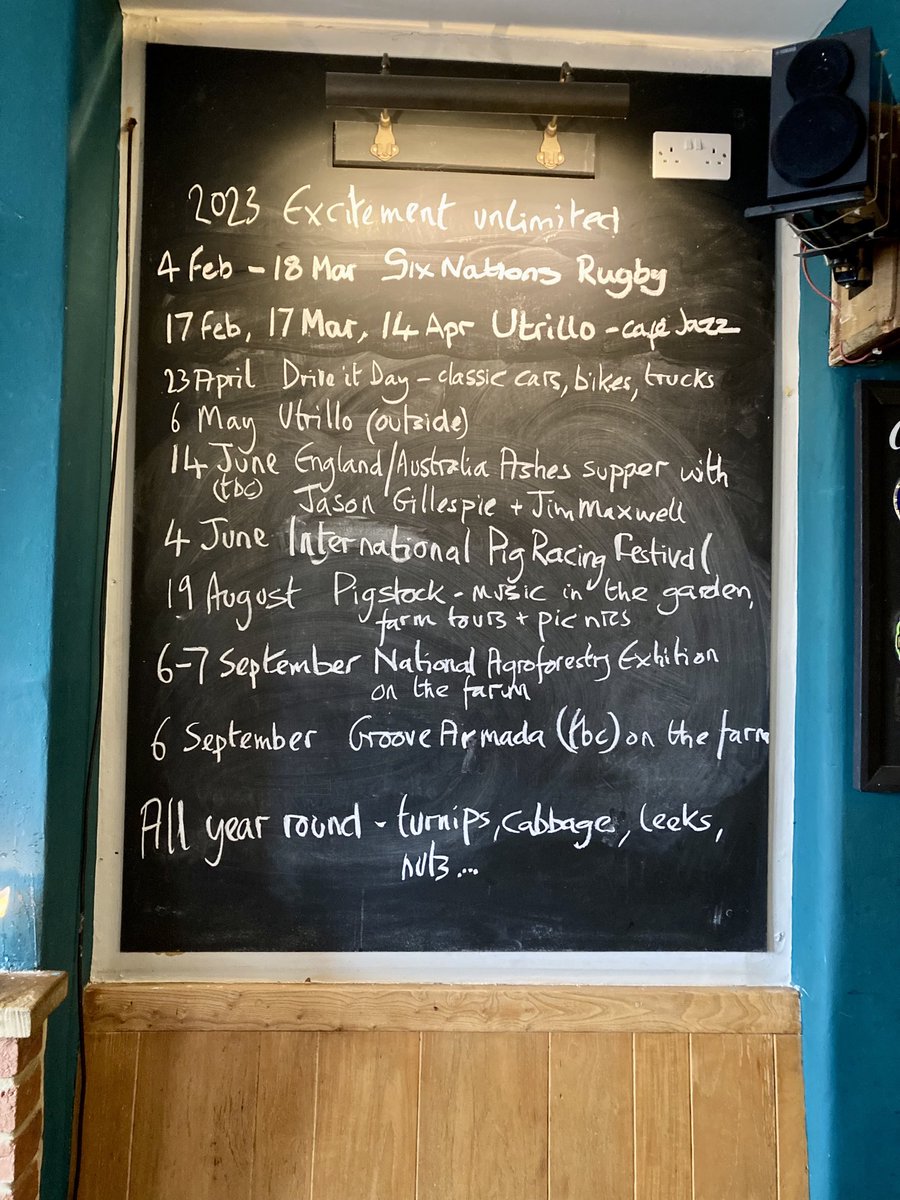 2023 Excitement unlimited
4 Feb - 18 Mar Six Nations Rugby
17 Feb, 17 Mar, 14 Apr Utrillo - café Jazz
23 April Drive it Day - classic cars, bikes, trucks
6 May Utrillo (outside)
14 June England/Australia Ashes supper with
(tbc) Jason Gillespie + Jim Maxwell
4 June International Pig Racing Festival
19 August Pigstock - music in the garden,
farm tours + picnics
6-7 September National Agroforestry Exhition
on the farm
6 September Groove Armada (tbc) on the farm
All year round - turnips, cabbage, leeks,
nuts...
YAMAHA